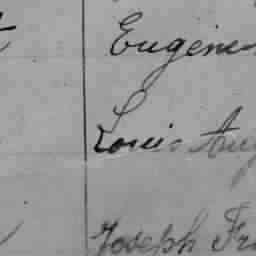 Eugène
Louis Aug
Joseph Fr